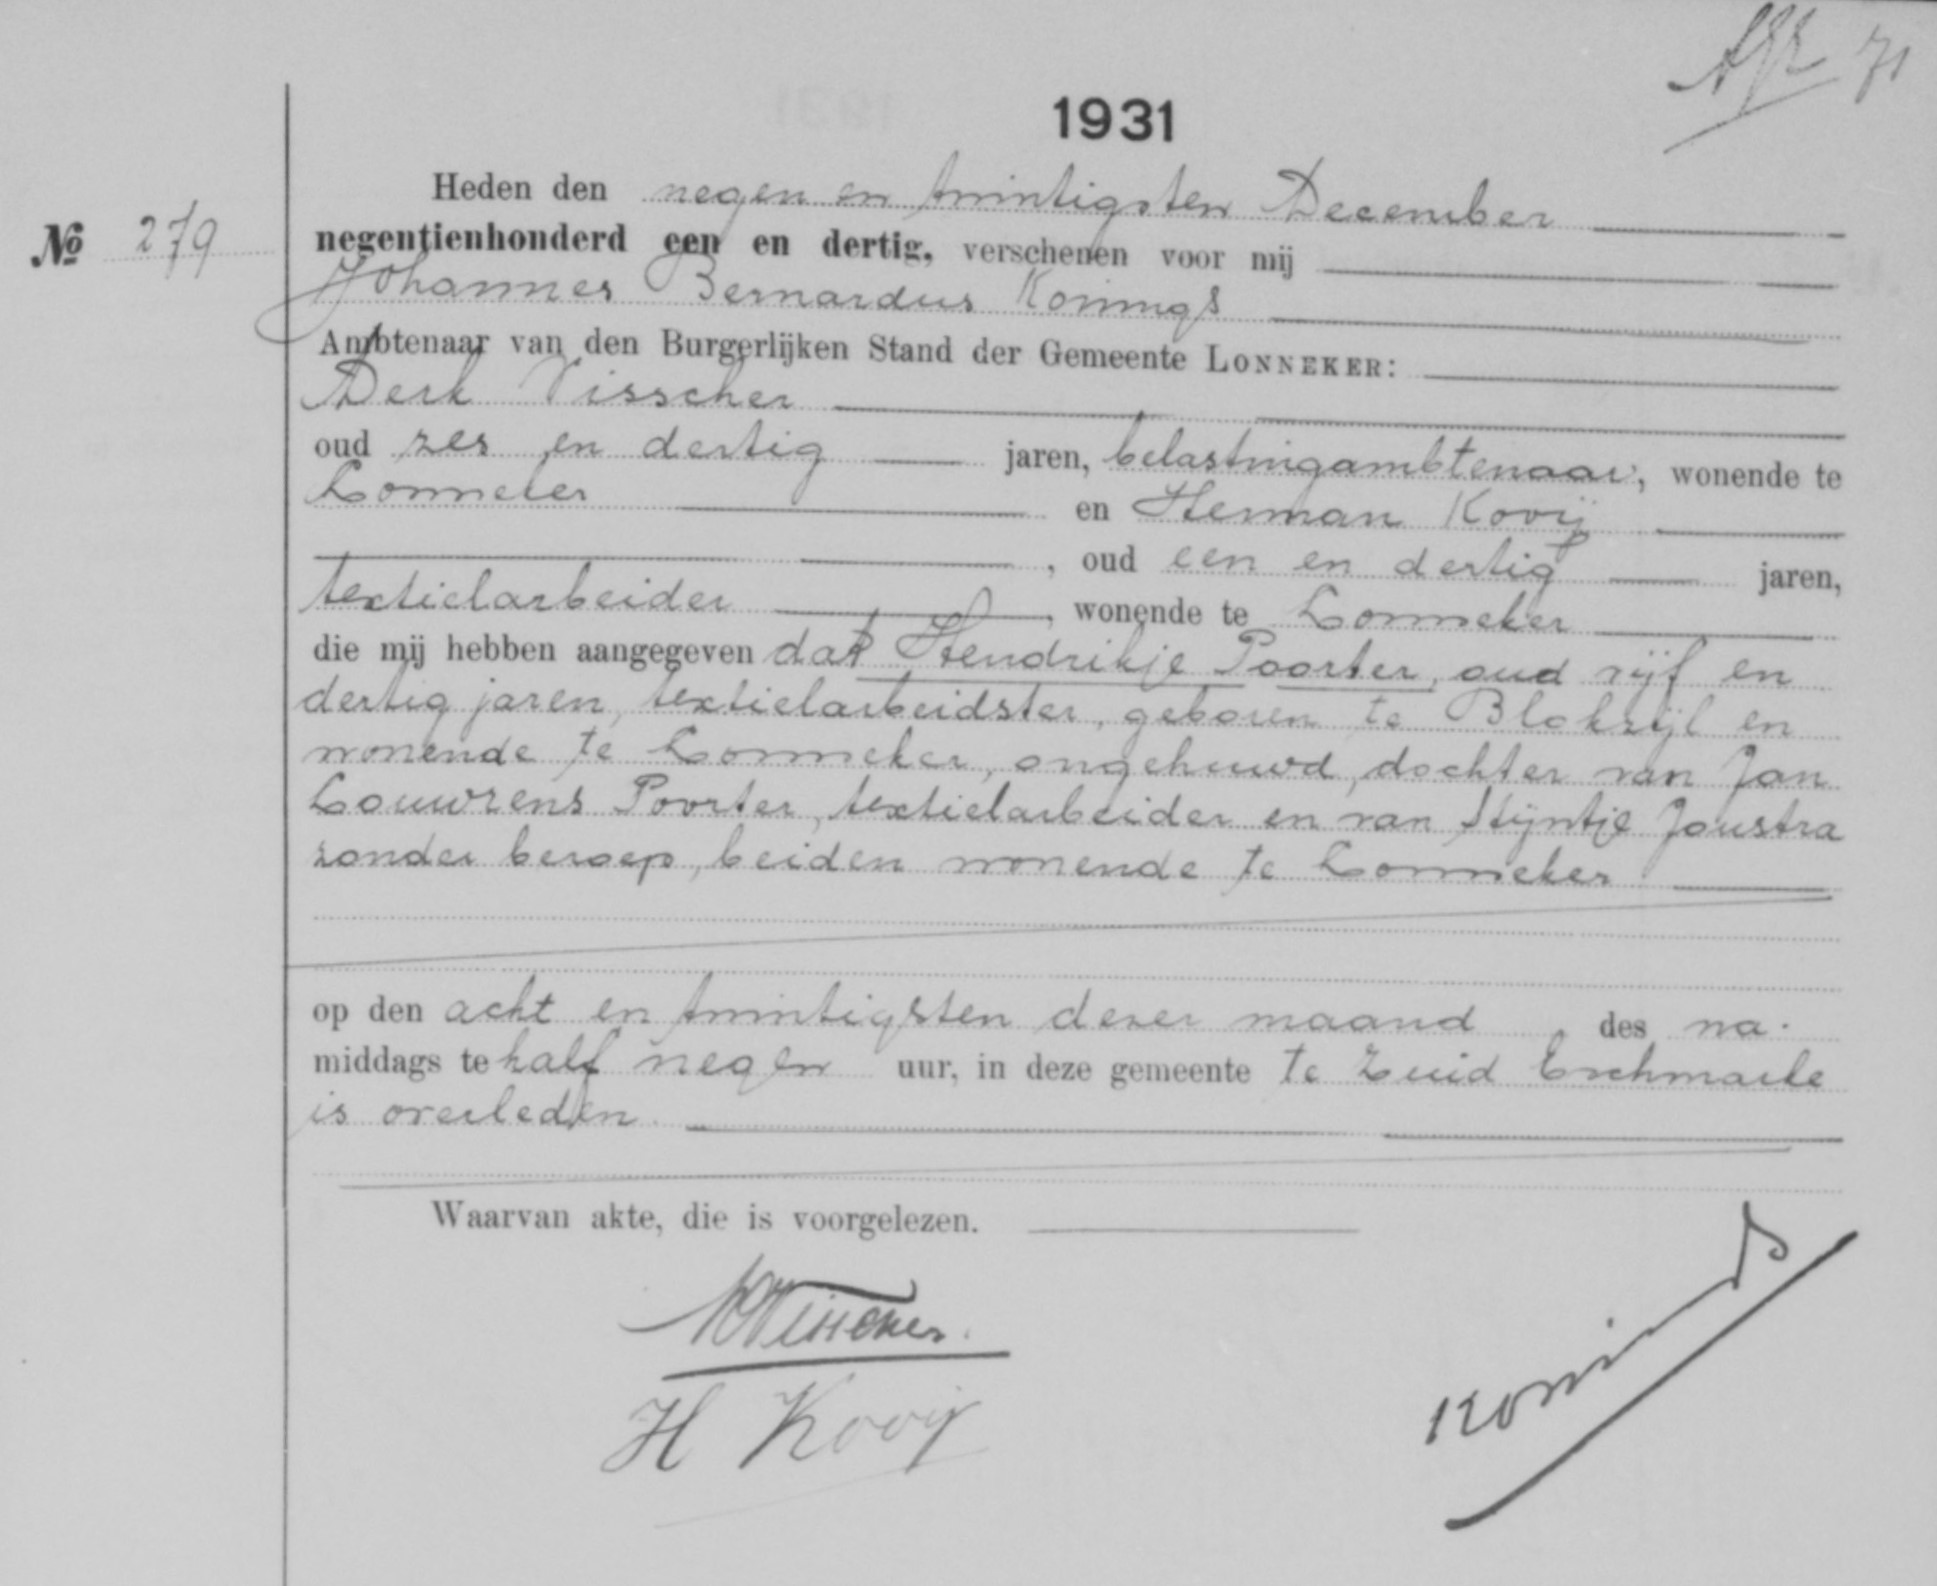 71
1931
Heden den negen en twintigsten December
№ 279
negentienhonderd een en dertig, verschenen voor mij
Johannes Bernardus Konings
Ambtenaar van den Burgerlijken Stand der Gemeente LONNEKER:
Derk Visscher
oud zes en dertig jaren, belastingambtenaar, wonende te
Lonneker en Herman Kooij
, oud een en dertig jaren,
textielarbeider, wonende te Lonneker
die mij hebben aangegeven dat Hendrikje Poorter, oud vijf en
dertig jaren, textielarbeidster, geboren te Blokzijl en
wonende te Lonneker, ongehuwd, dochter van Jan
Louwrens Poorter, textielarbeider en van Stijntje Joustra
zonder beroep, beiden wonende te Lonneker
op den acht en twintigsten dezer maand, des na-
middags te half negen uur, in deze gemeente te Zuid Eschmarke
is overleden
Waarvan akte, die is voorgelezen.
DVisscher.
H Kooij
Konings